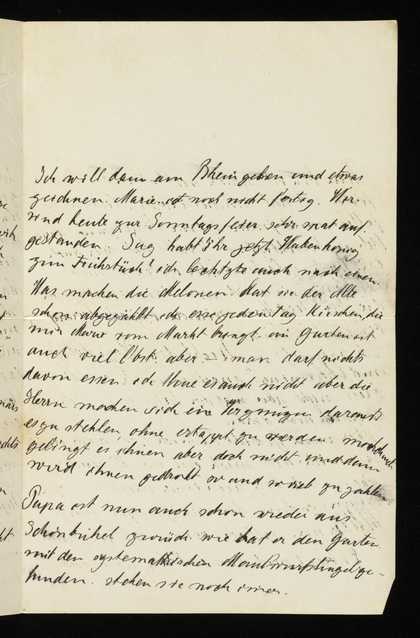 Ich will dann am Rhein gehen und etwas
zeichnen. Marie ist noch nicht fertig. Wir
sind heute zur Sonntagsfeier sehr spat auf-
gestanden. Sag habt Ihr jetzt Wabenhonig
zum Frühstück? ich lechtzte auch nach einem.
Was machen die Melonen. Hat sie der Alte
schon abgezählt ich esse jeden Tag Kirschen, die
mir Marie vom Markt bringt. im Garten ist
auch viel Obst. aber man darf nichts
davon essen. ich thue es auch nicht aber die
Herrn machen sich ein Vergnügen daraus
es zu stehlen, ohne ertappt zu werden. manchmal
gelingt es ihnen aber doch nicht und dann
wird ihnen gedroht so und so viel zu zahlen
Papa ist nun auch schon wieder aus
Schönbühel zurück. wie hat er den Garten
mit den systematischen Maulwurfshügel ge-
funden. stehen sie noch immer.